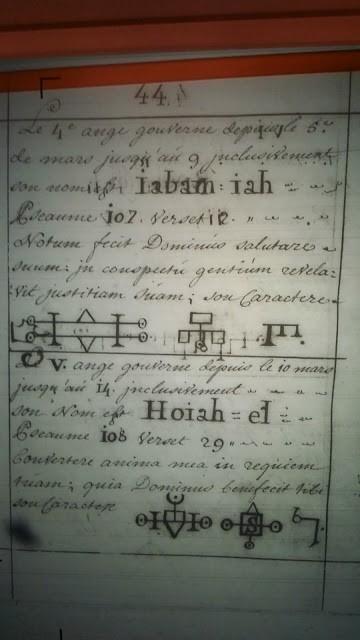 44
Le 4e ange gouverne depuis le 5e
de mars jusqu'au 9 jnclusivement
son nom est Iabam: iah
Pseaume 107. verset 12.
Notum fecit Dominus salutare
suum: jn conspectu gentium revela=
vit justitiam suam; son Caractere
Le V. ange gouverne depuis le 10 mars
jusqu'au 14. jnclusivement
son Nom est Hoiah = el
Pseaume 108 Verset 29
Convertere anima mea in requiem
tuam; quia Dominus benefecit tibi
son Caractere